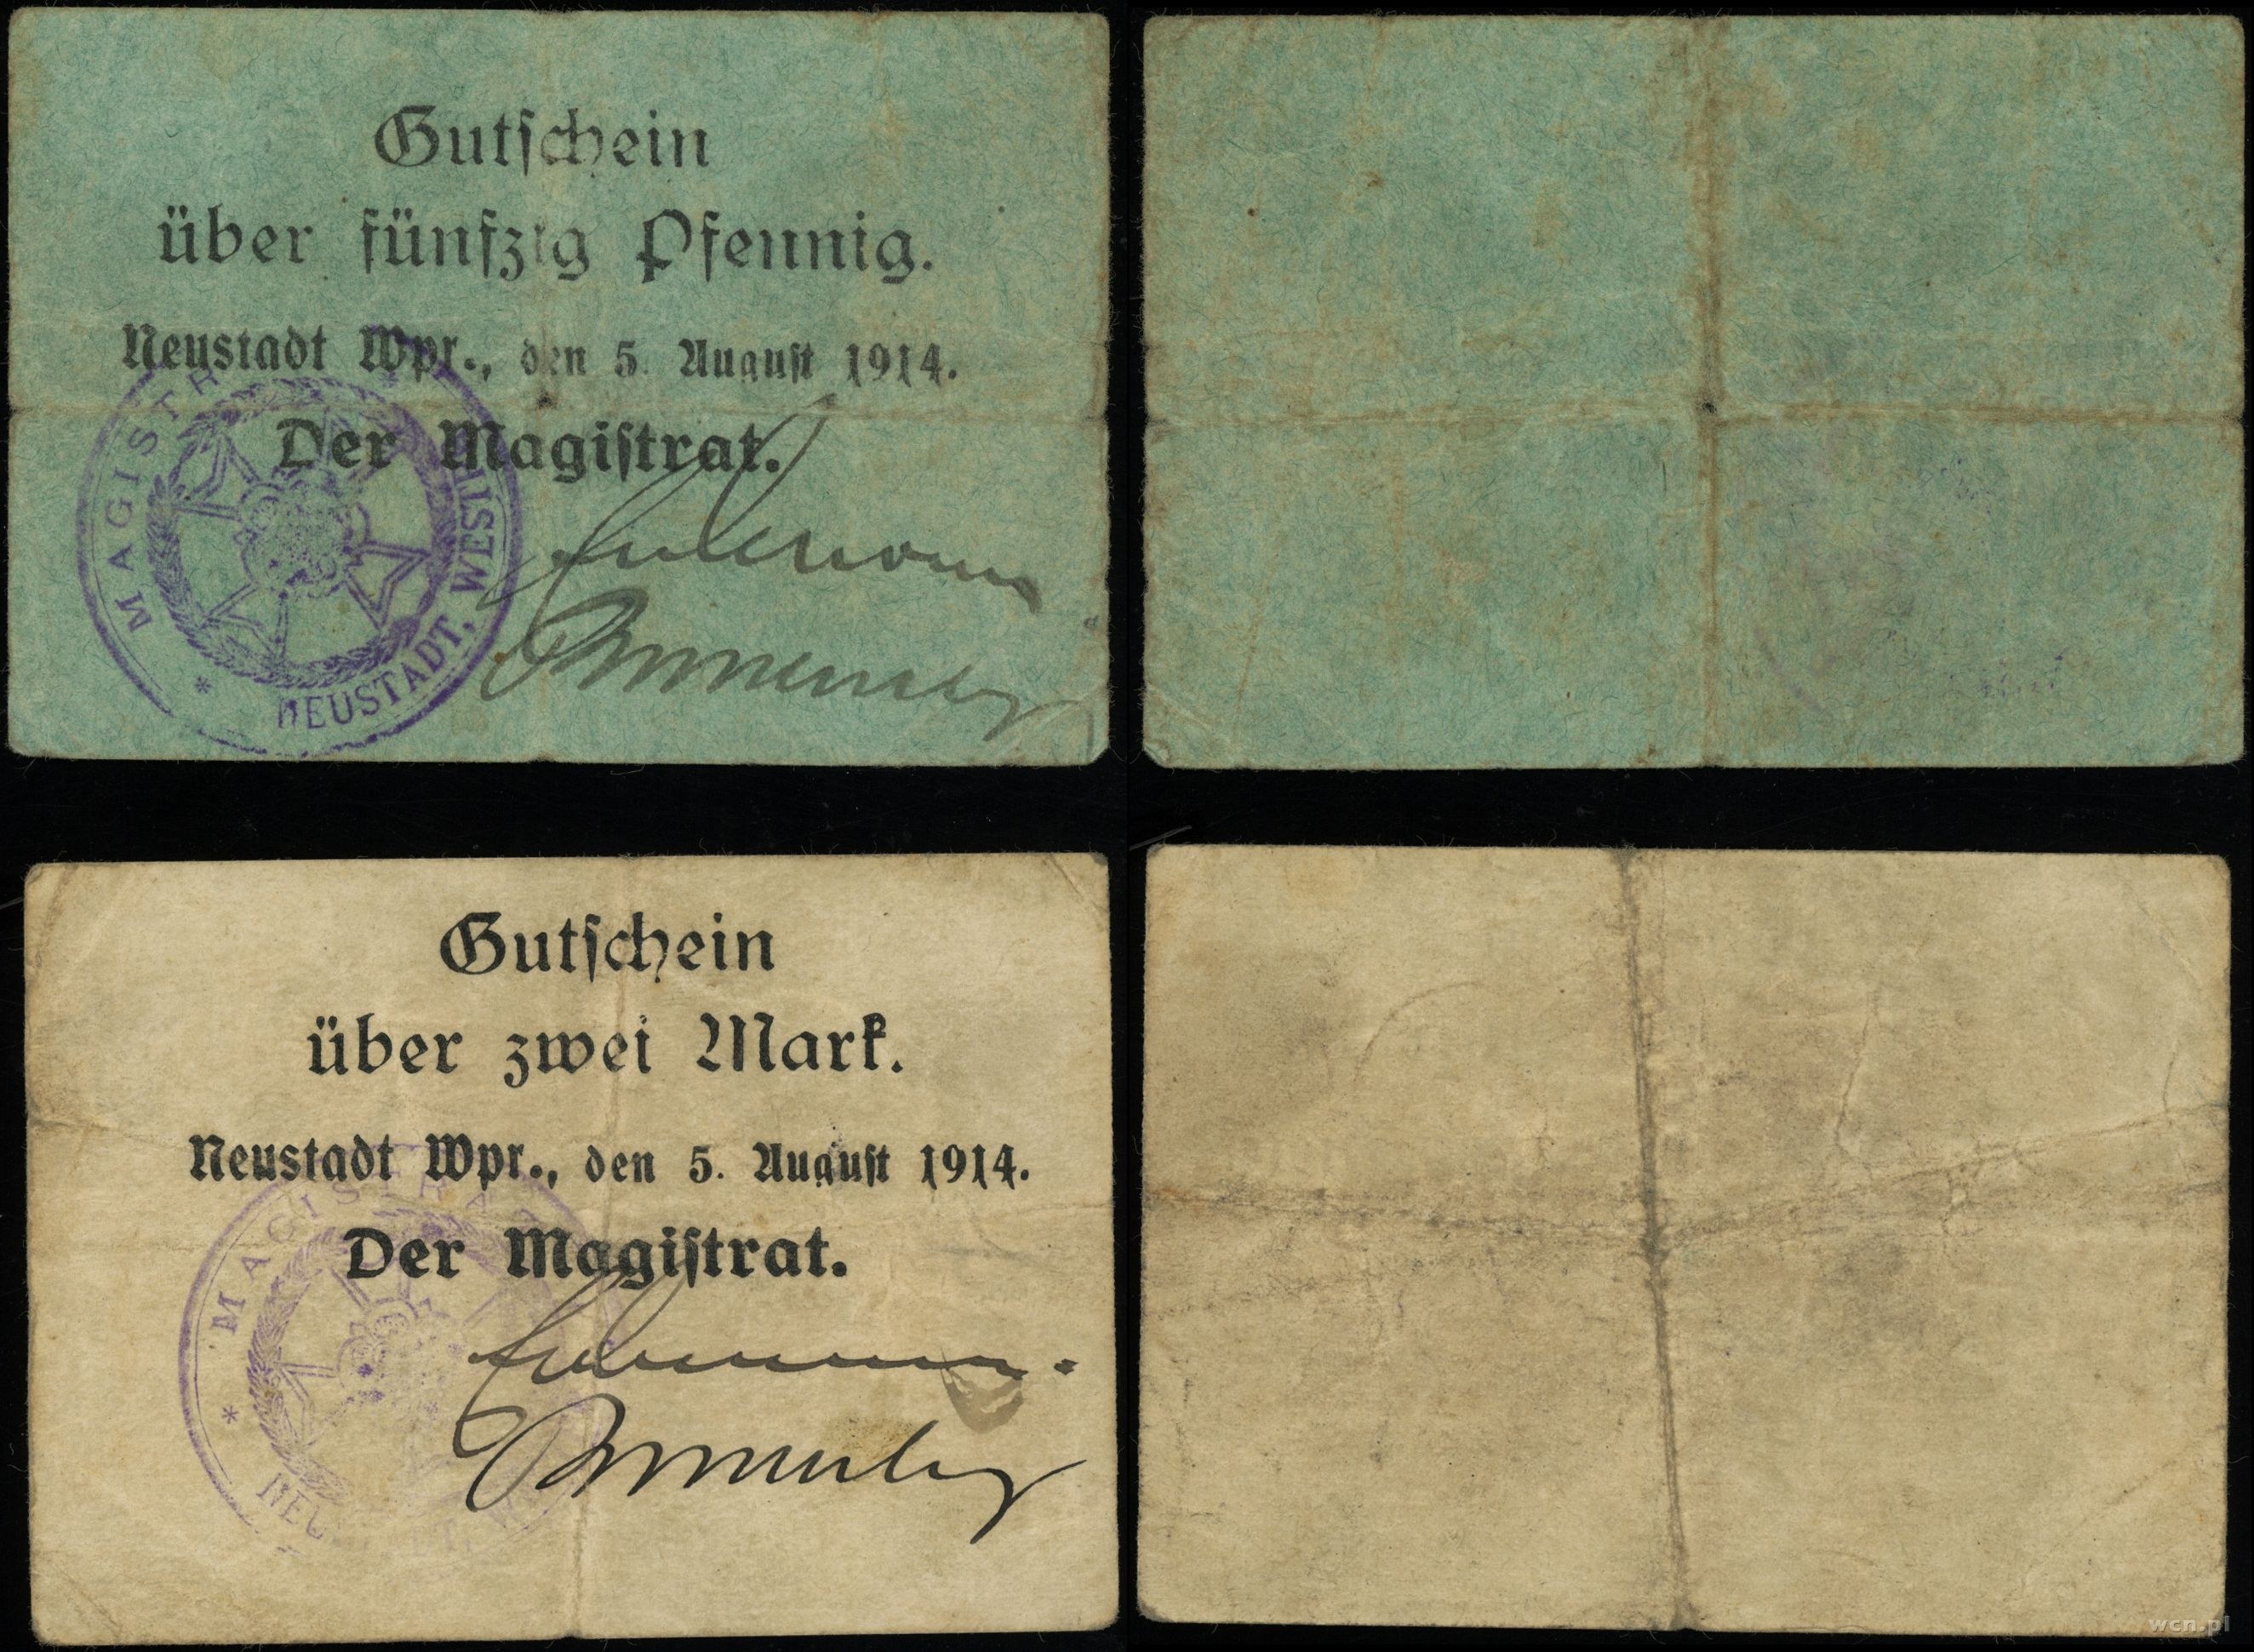 Gutschein
über fünfzig Pfennig.
Neustadt Wpr., den 5. August 1914.
Der Magistrat.
MAGISTR
NEUSTADT, WEST
Gutschein
über zwei Mark.
Neustadt Wpr., den 5. August 1914.
Der Magistrat.
MAGISTRA
wcn.pl